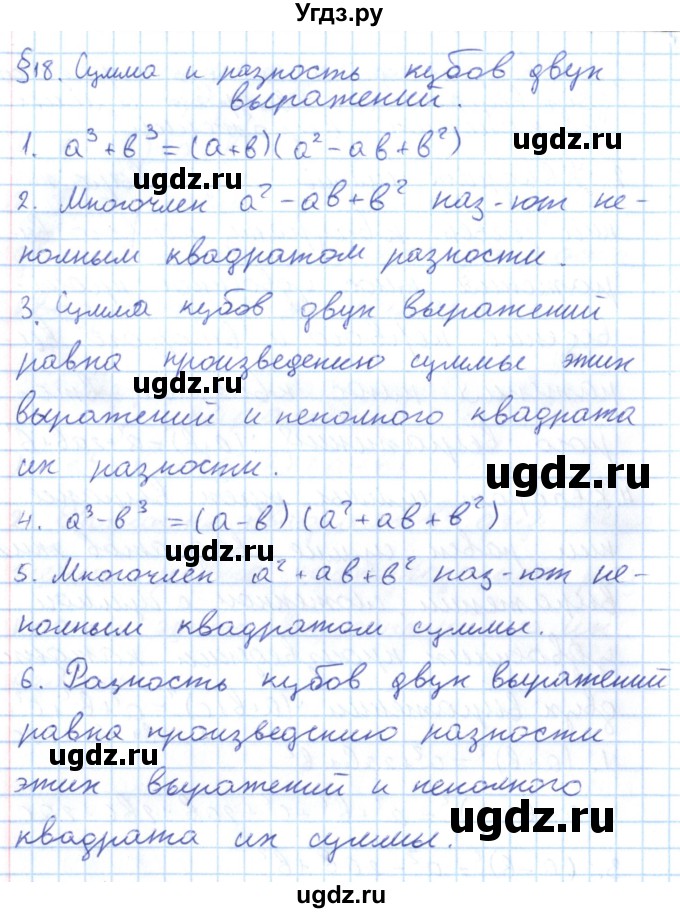 Угдз.ру
§18. Сумма и разность кубов двух
выражений.
1. а³+в³=(а+в)(а²-ав+в²)
ugdz.ru
ugdz.ru
2. Многочлен а²-ав+в² наз-ют не-
полным квадратом разности.
3. Сумма кубов двух выражений
равна произведению суммы этих
ugdz.ru
выражений и неполного квадрата
их разности.
ugdz.ru
4. а³-в³ =(а-в)(а²+ав+в²)
ugdz.ru
5. Многочлен а²+ав+в² наз-ют не-
полным квадратом суммы.
6. Разность кубов двух выражений
равна произведению разности
ugdz.ru
этих выражений и неполного
ugdz.ru
квадрата их суммы.
ugdz.ru